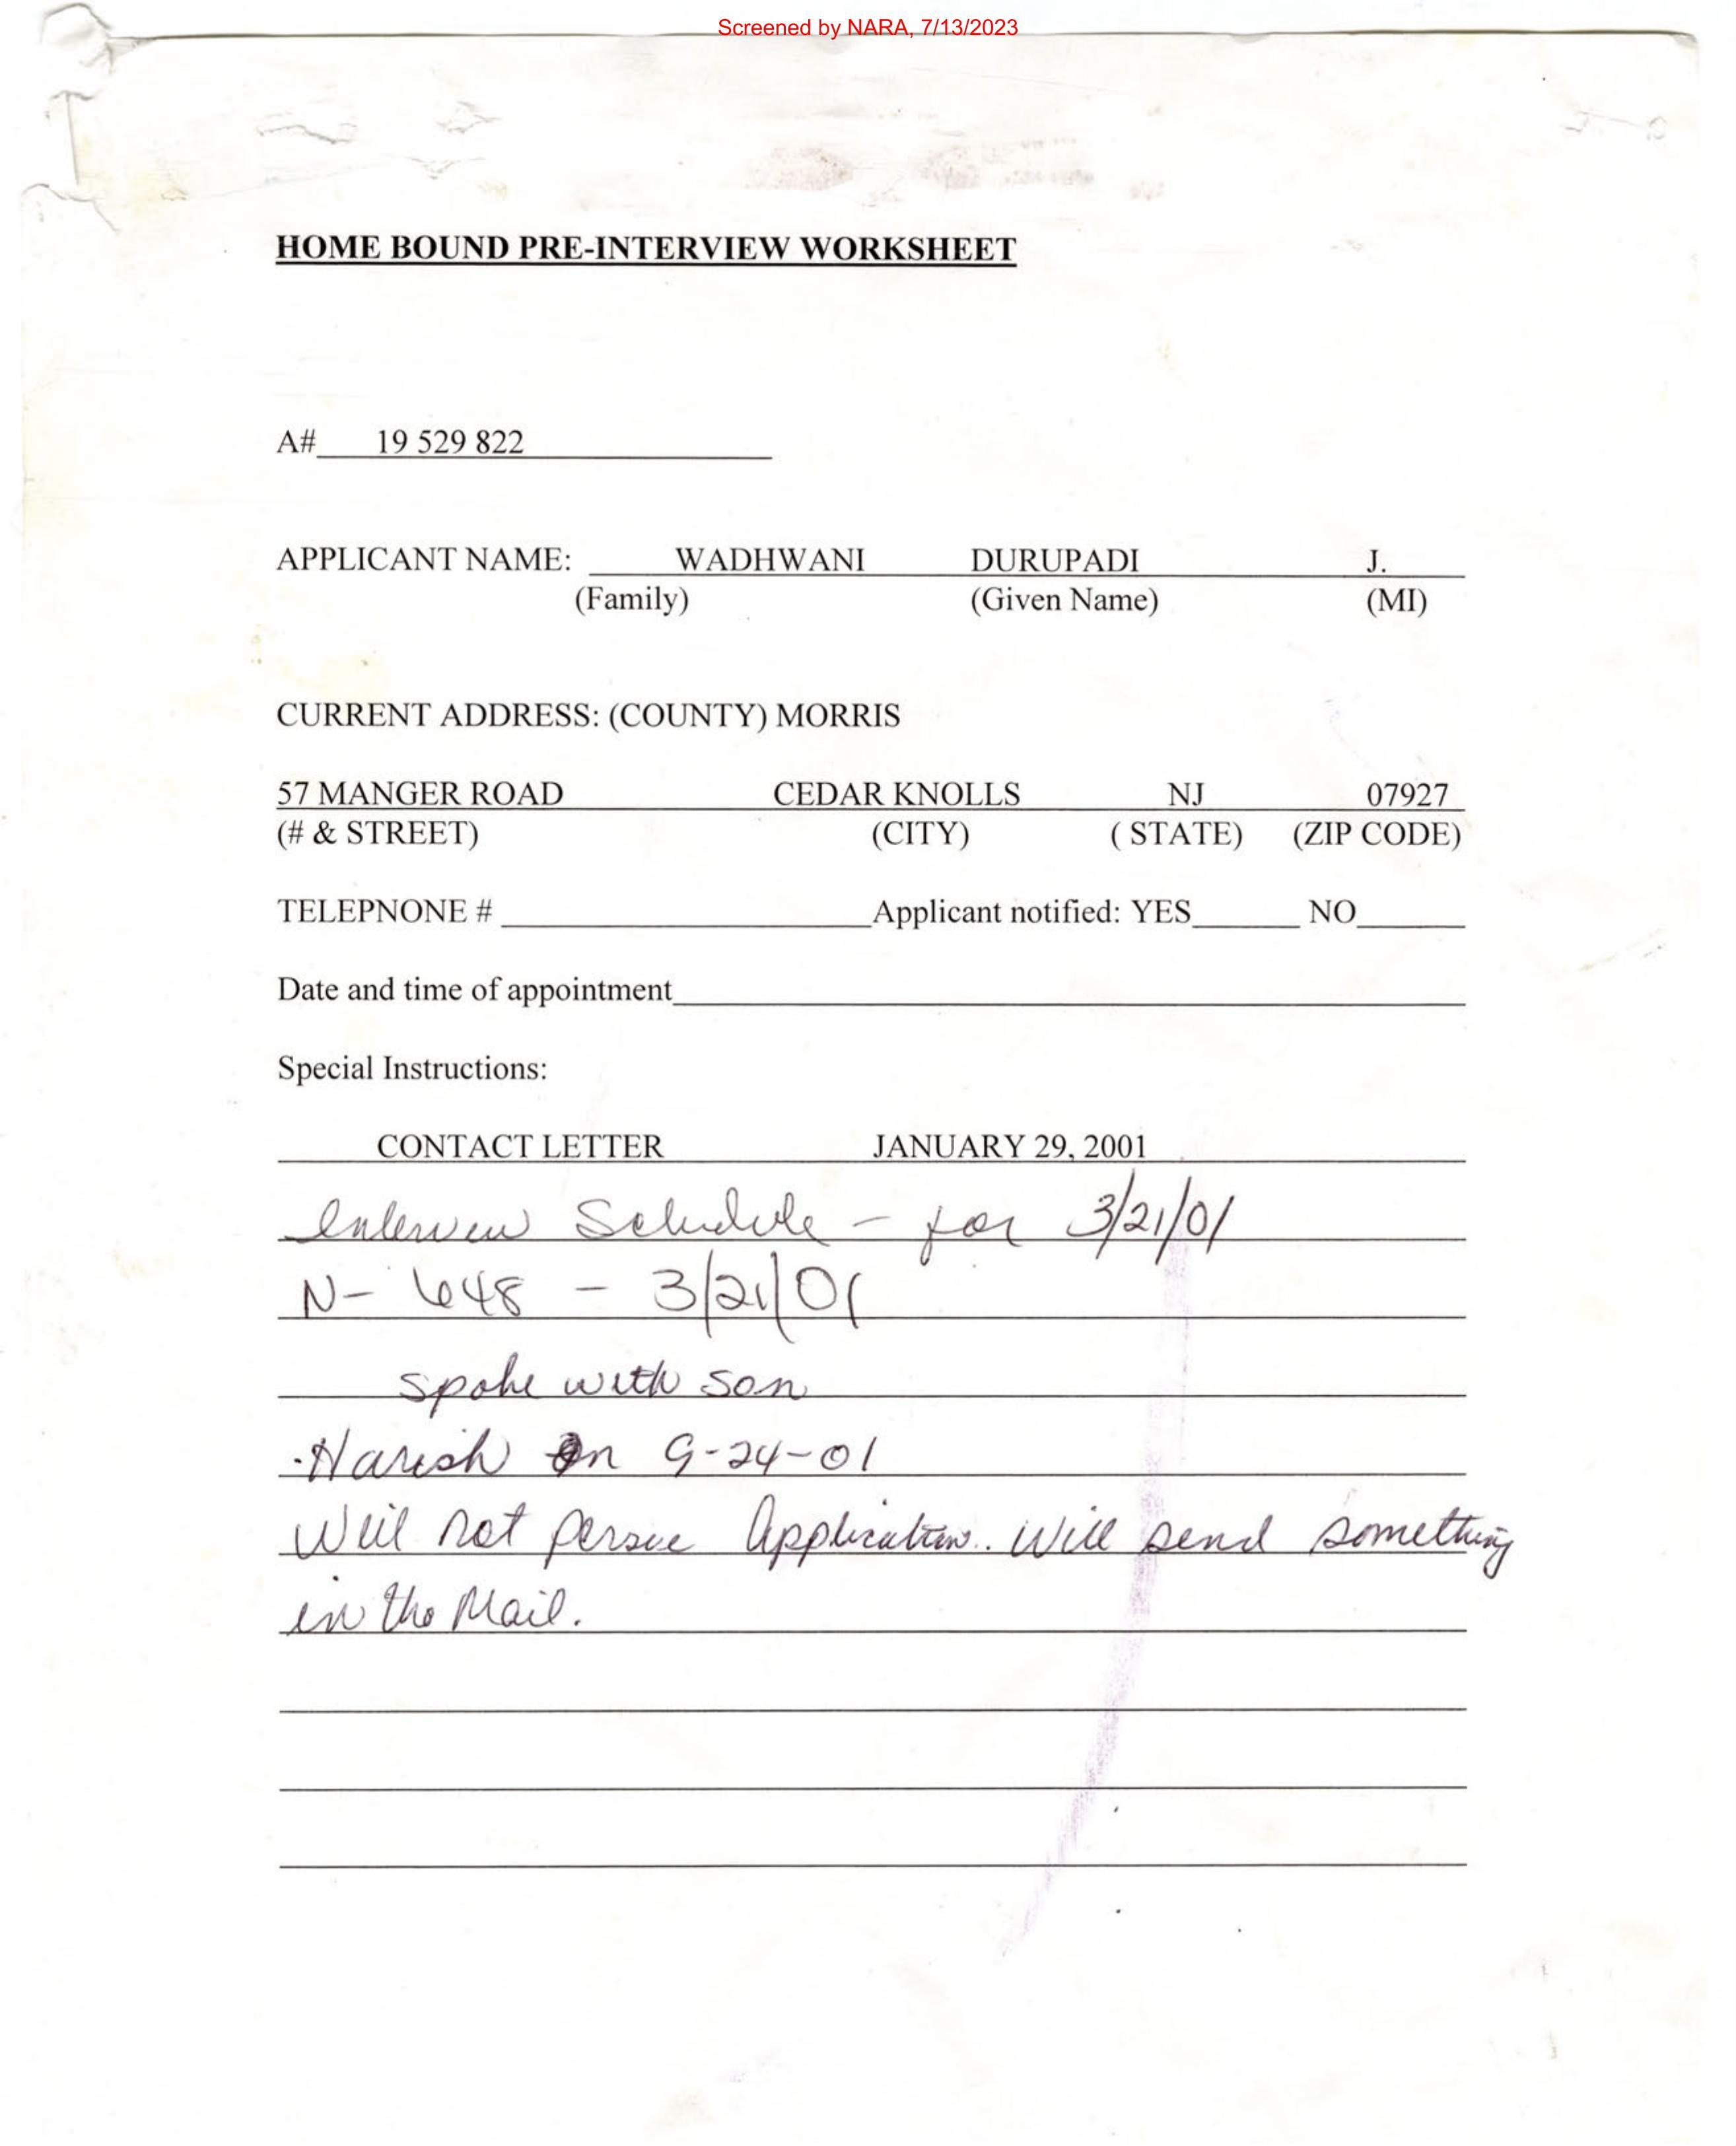 Screened by NARA, 7/13/2023
HOME BOUND PRE-INTERVIEW WORKSHEET
A# 19 529 822
APPLICANT NAME: WADHWANI DURUPADI J.
(Family) (Given Name) (MI)
CURRENT ADDRESS: (COUNTY) MORRIS
57 MANGER ROAD CEDAR KNOLLS NJ 07927
(# & STREET) (CITY) ( STATE) (ZIP CODE)
TELEPNONE # Applicant notified: YES NO
Date and time of appointment
Special Instructions:
CONTACT LETTER JANUARY 29, 2001
Interview Schedule - for 3/21/01
N- 648 - 3/21/01
spoke with son
Harish on 9-24-01
Will not persue Application. Will send something
in the Mail.